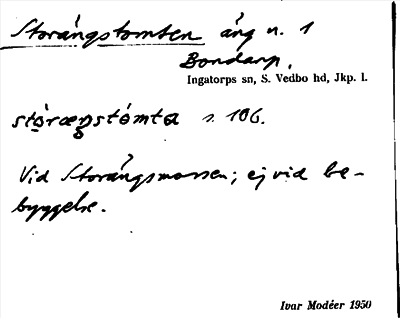 Storängstomten äng n. 1
Bondarp.
Ingatorps sn, S. Vedbo hd, Jkp. l.
stóræŋstómta s. 106.
Vid Storängsmossen; ej vid be-
byggelse.
Ivar Modéer 1950